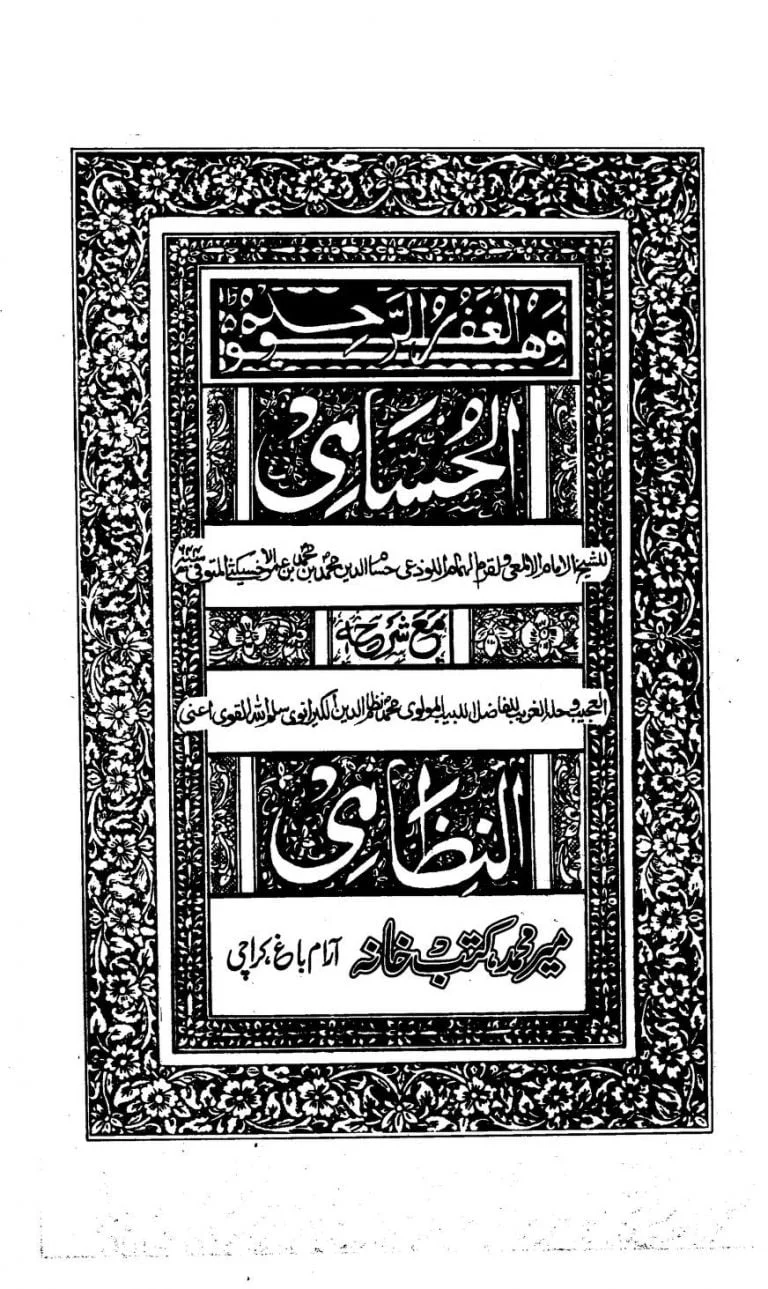 وهو الغفور الرحيم
الحُسَامِي
للشيخ الامام الالمعي والقرم الهمام اللوذعي حسام الدين محمد بن محمد بن عمر الاخسيكثي المتوفى سنة ٦٤٤ھ
مَعَ شَرْحِه
العجيب وحله الغريب للفاضل اللبيب المولوي محمد نظام الدين الكيرانوي سلمه الله القوي اعنى
النِظَامِي
مير محمد، كتب خانه آرام باغ، كراچی